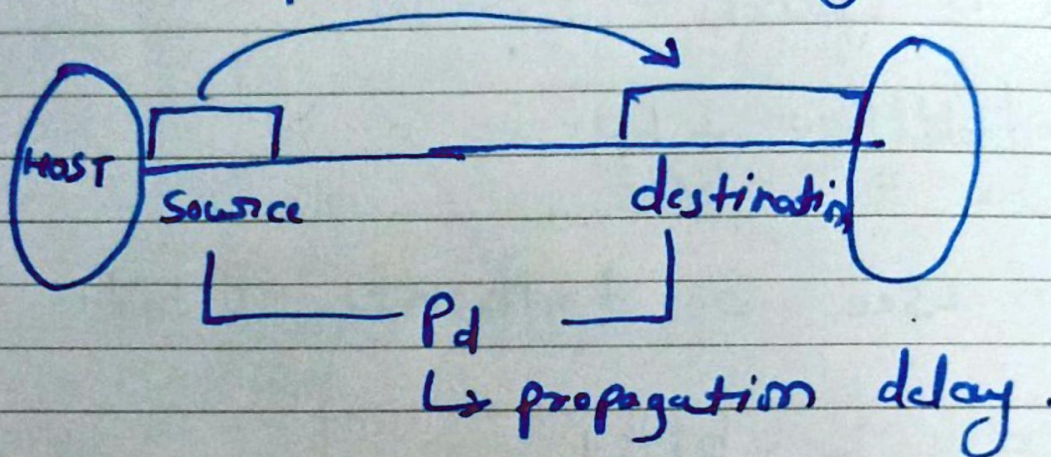 HOST
Source
destination
Pd
↳ propagation delay.